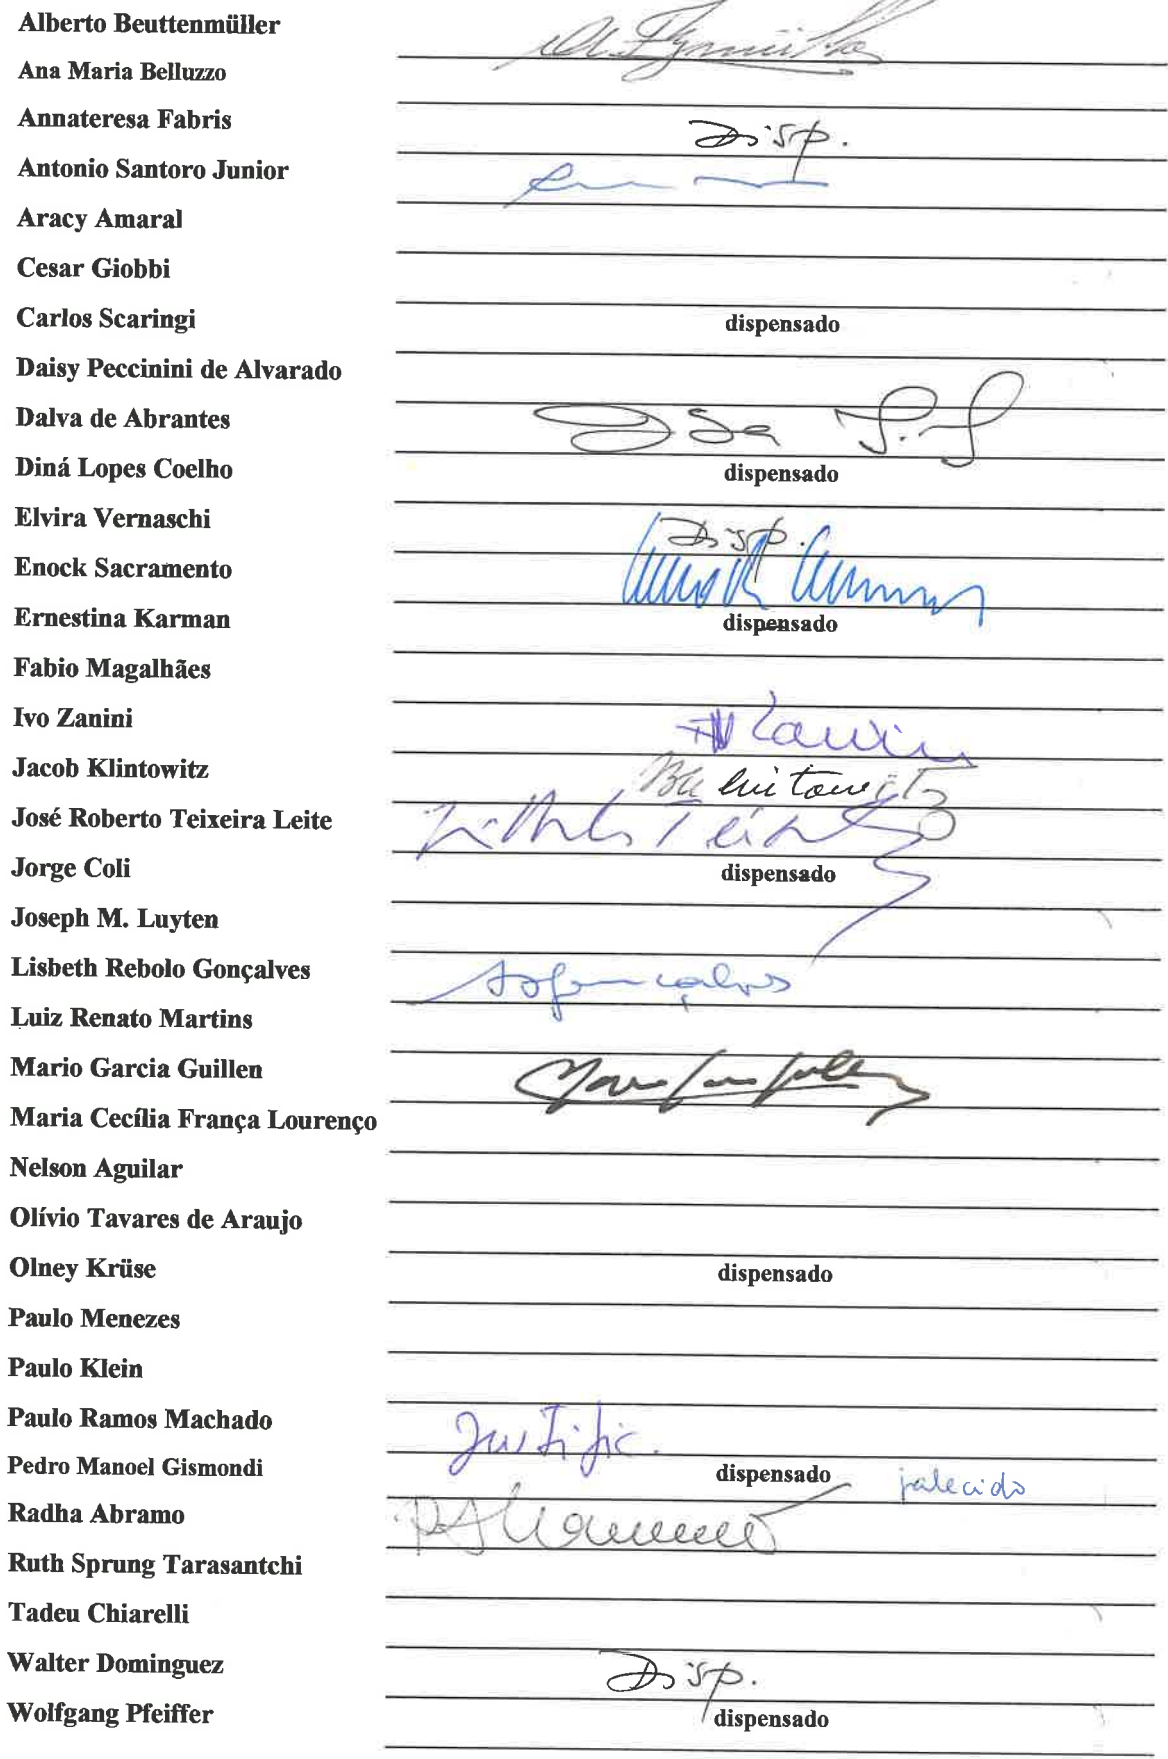 Alberto Beuttenmüller
Ana Maria Belluzzo
Annateresa Fabris Disp.
Antonio Santoro Junior
Aracy Amaral
Cesar Giobbi
Carlos Scaringi dispensado
Daisy Peccinini de Alvarado
Dalva de Abrantes
Diná Lopes Coelho dispensado
Elvira Vernaschi Disp.
Enock Sacramento
Ernestina Karman dispensado
Fabio Magalhães
Ivo Zanini
Jacob Klintowitz
José Roberto Teixeira Leite
Jorge Coli dispensado
Joseph M. Luyten
Lisbeth Rebolo Gonçalves
Luiz Renato Martins
Mario Garcia Guillen
Maria Cecília França Lourenço
Nelson Aguilar
Olívio Tavares de Araujo
Olney Krüse dispensado
Paulo Menezes
Paulo Klein
Paulo Ramos Machado Justific.
Pedro Manoel Gismondi dispensado falecido
Radha Abramo
Ruth Sprung Tarasantchi
Tadeu Chiarelli
Walter Dominguez Disp.
Wolfgang Pfeiffer dispensado